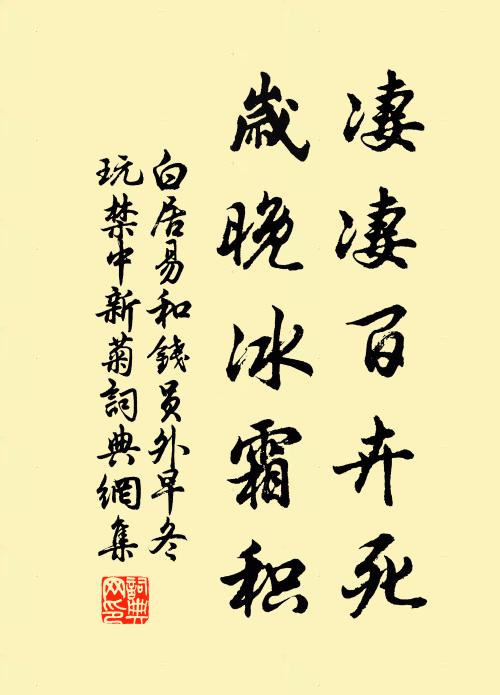 凄凄百卉死
歲晚冰霜积
白居易和錢员外早冬
玩禁中新菊詞典網集
詞典网印